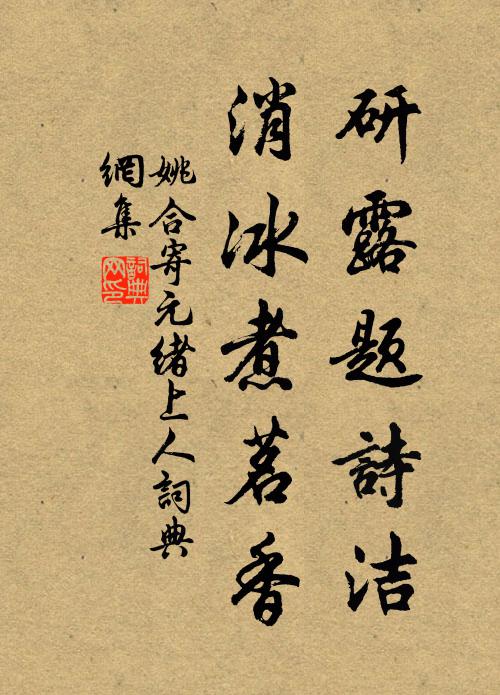 研露题詩洁
消冰煮茗香
姚合寄元绪上人詞典
網集
詞典
网印